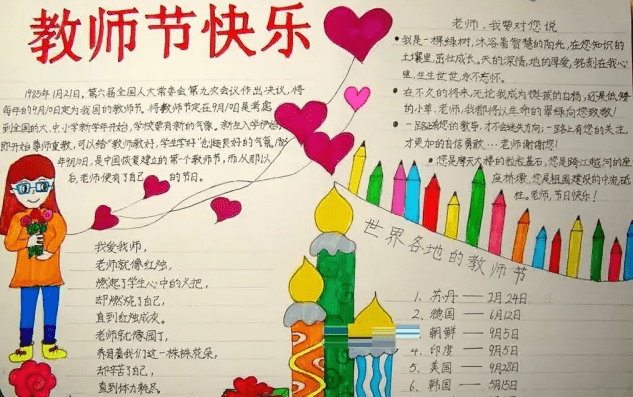 教师节快乐
1985年1月21日,第六届全国人大常委会第九次会议作出决议,将
每年的9月10日定为我国的教师节。将教师节定在9月10日是考虑
到全国的大、中、小学新学年开始,学校要有新的气象。新生入学伊始,
即开始尊师重教,可以给"教师教好,学生学好"创造良好的气氛。
年9月10日,是中国恢复建立的第一个教师节,而从那以
后,老师便有了自己的节日。
老师,我要对您说
我是一棵绿树,沐浴着智慧的阳光,在您知识的
土壤里,茁壮成长。天的深情,地的厚爱,铭刻在我心
里,生生世世,永不忘怀。
在不久的将来,无论我成为挺拔的白杨,还是低矮
的小草,老师,我都将以生命的翠绿向您致敬!
一路上有您的教导,才不会迷失方向;一路上有您的关注,
才更加的自信勇敢…老师谢谢您!
您是摩天大楼的粒粒基石,您是跨江越河的座
座桥墩,您是祖国建设的中流砥
柱。老师,节日快乐!
我爱我师,
老师就像红烛,
燃烧了学生心中的火把,
却燃烧了自己,
直到红烛成灰。
老师就像园丁,
养育着我们这一株株花朵,
却辛苦了自己,
直到体力耗尽。
世界各地的教师节
1、苏丹——2月24日
2、德国——6月12日
朝鲜——9月5日
4、印度——9月5日
5、美国——9月28日
6、韩国——5月15日